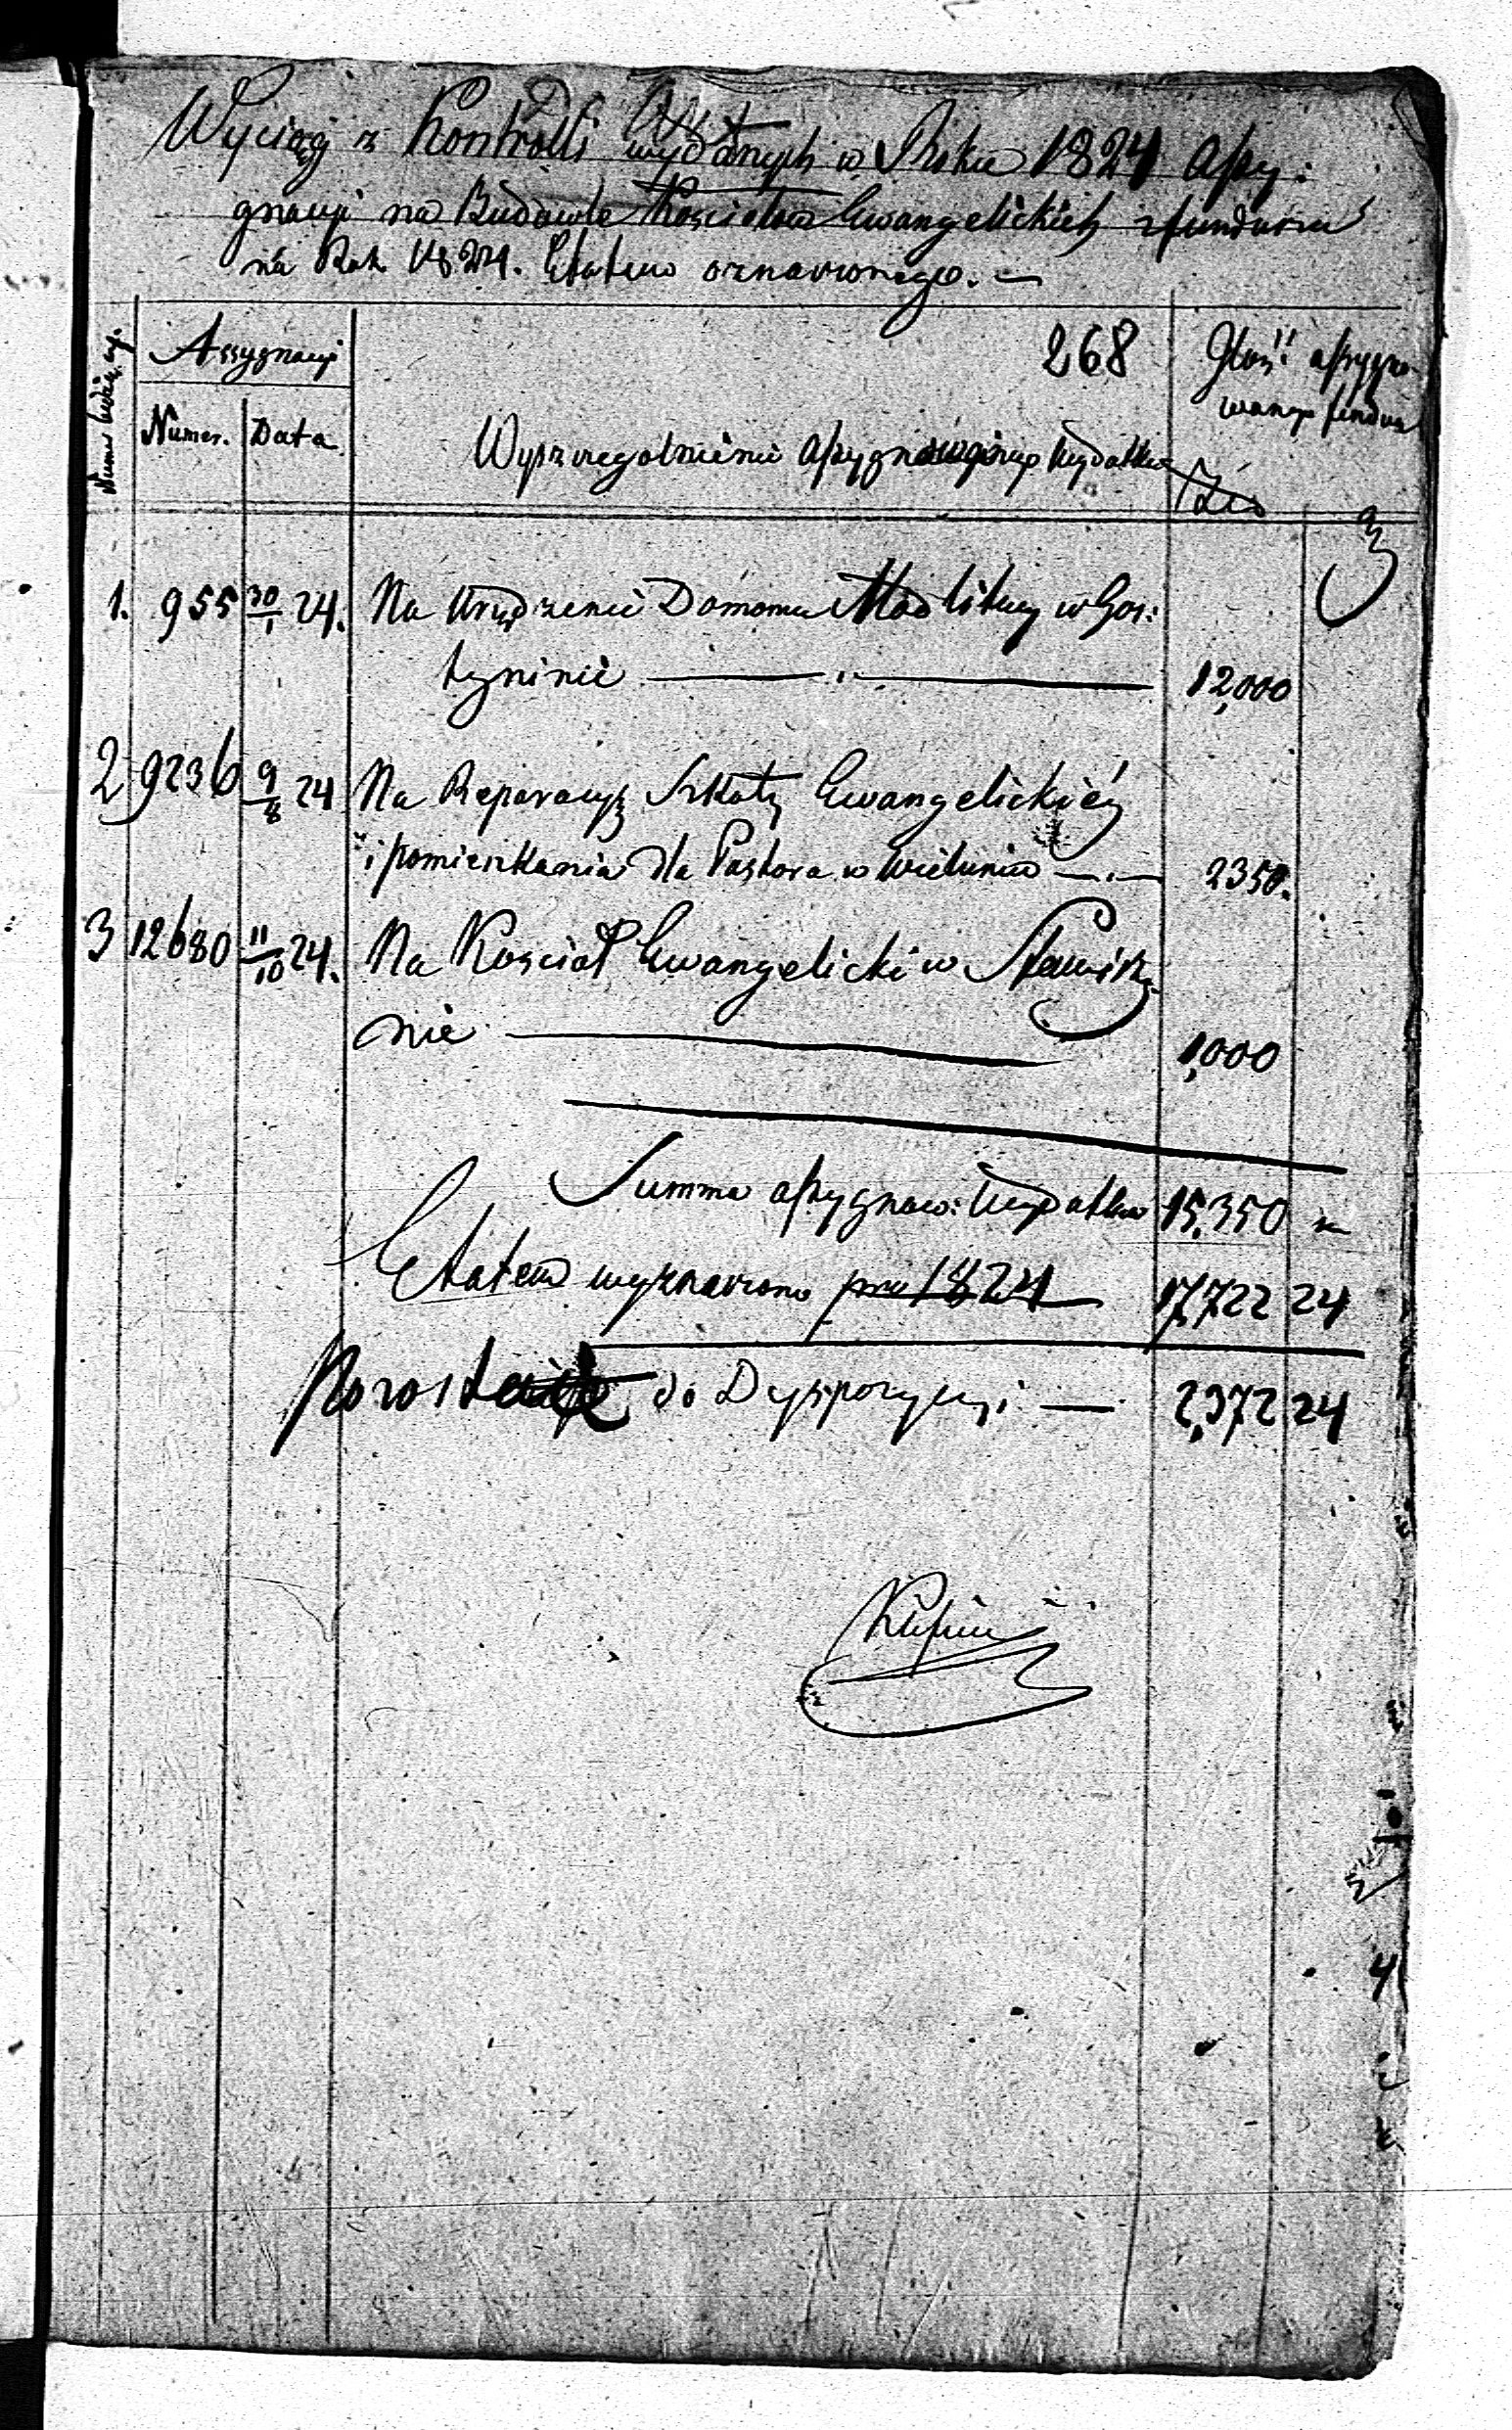 Wyciąg z Kontrolli wydanych w Roku 1824 assy:
gnacyi na Budowle Kościołow Ewangelickich z funduszu
na Rok 1824. Etatem oznaczonego. —
268
Assygnacyi
Numer. Data
Wyszczegolnienie assygnowanego Wydatku
Ilość assygno-
wanego fundusz
Złp
gr
1. 955 30/1 24. Na Urządzenie Domu Modlitwy w Gos:
tyninie — " — 12,000
2 9236 9/8 24 Na Reparacyą Szkoły Ewangelickiéy
i pomieszkania dla Pastora w Wieluniu — " — 2350.
3 12680 11/10 24. Na Kościoł Ewangelicki w Stawiszy-
nie — 1,000
Summa assygnow: Wydatku 15,350 "
Etatem wyznaczono pro 1824 17,722 24
Pozostaie do Dyspozycyi — 2,372 24